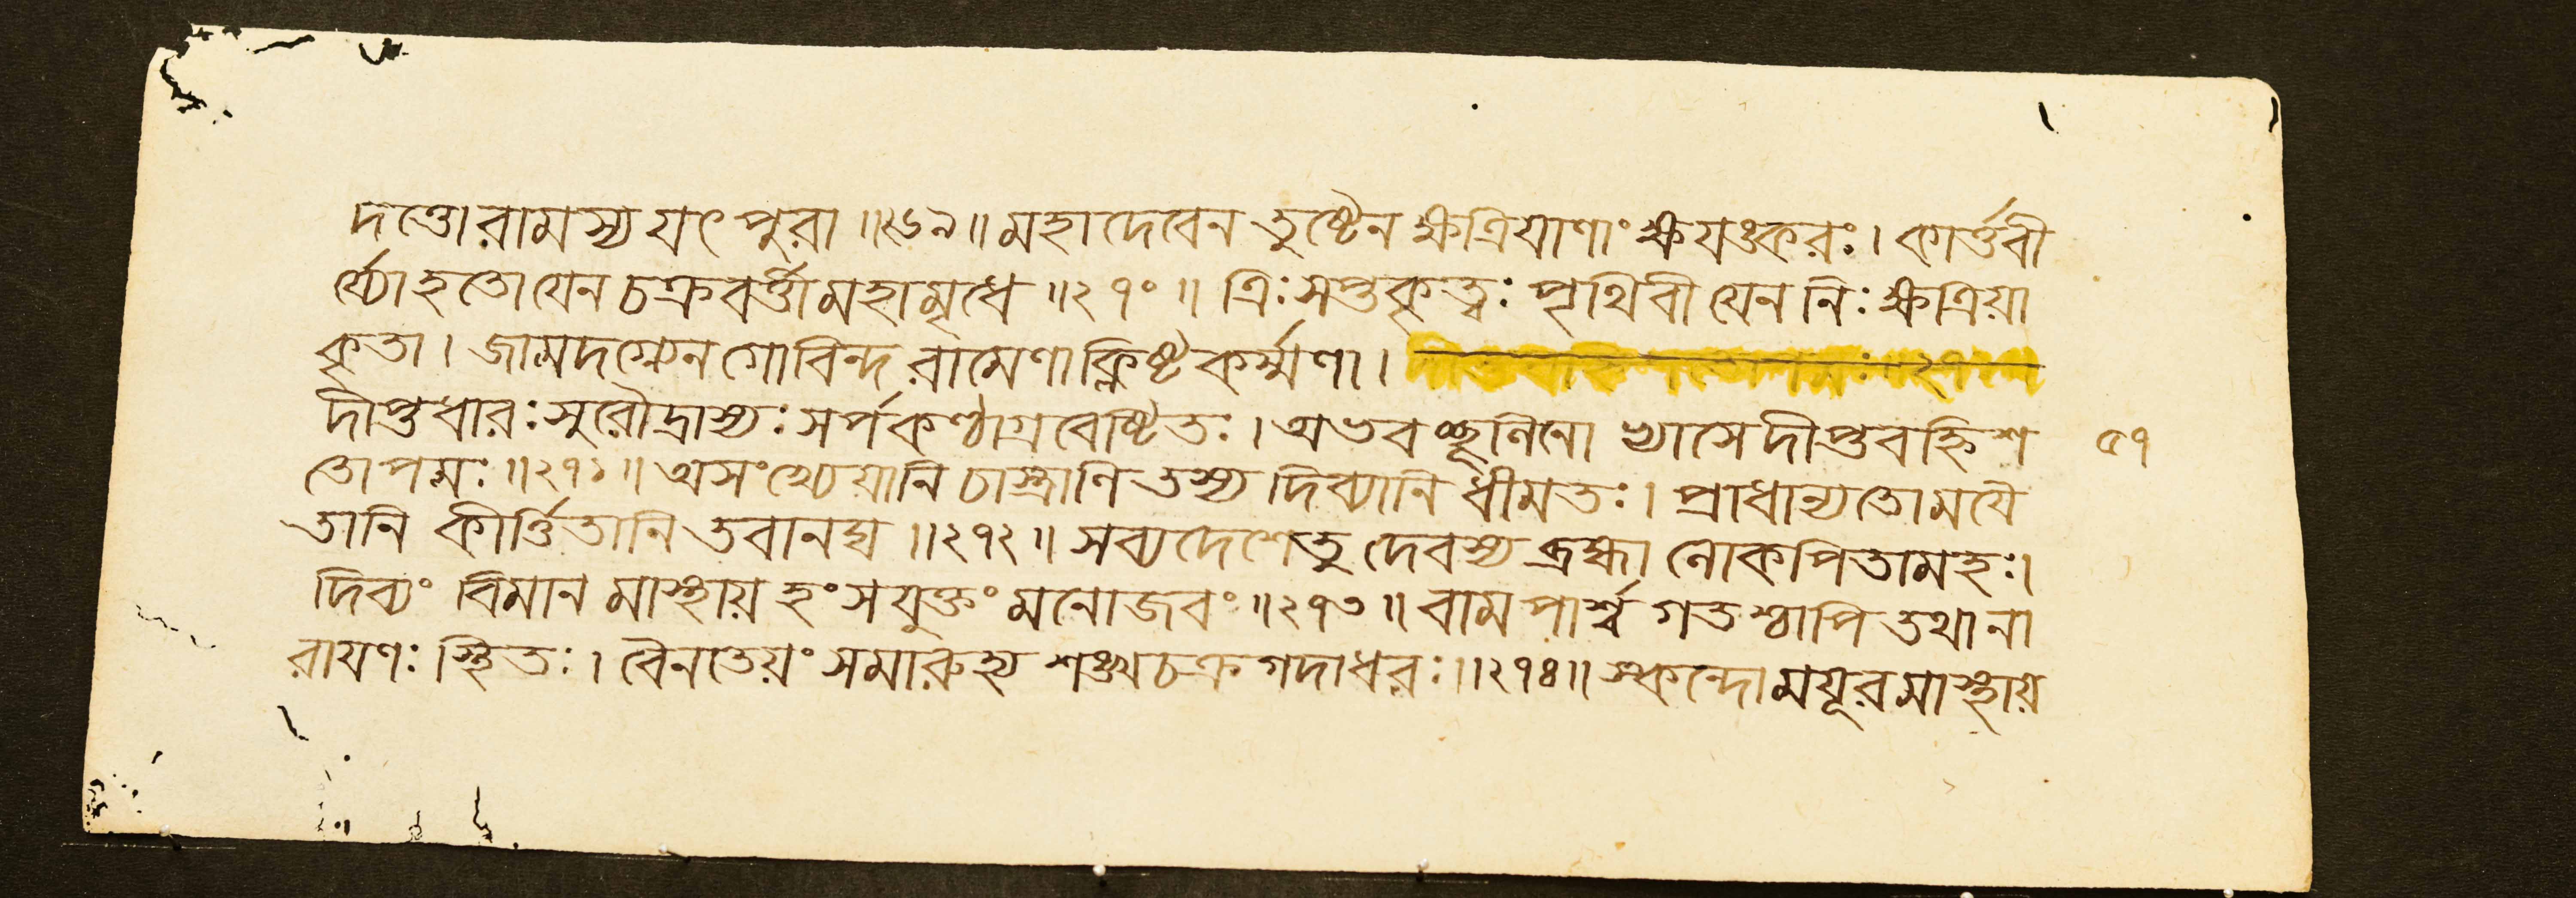 দত্তো রামস্য যৎ পুরা ॥২৬৯॥ মহাদেবেন তুষ্টেন ক্ষত্রিযাণাং ক্ষযঙ্করঃ। কার্ত্তবী
র্য্যো হতো যেন চক্রবর্ত্তী মহামৃধে ॥২৭০॥ ত্রিঃ সপ্তকৃত্বঃ পৃথিবী যেন নিঃক্ষত্রিয়া
কৃতা। জামদগ্ন্যেন গোবিন্দ রামেণাক্লিষ্টকর্ম্মণা।
দীপ্তধারঃ সুরৌদ্রাস্যঃ সর্পকণ্ঠাগ্রবেষ্টিতঃ। অভবচ্ছূলিনো খাসে দীপ্তবহ্নিশ ৫৭
তোপমঃ ॥২৭১॥ অসংখ্যেয়ানি চাস্ত্রাণি তস্য দিব্যানি ধীমতঃ। প্রাধান্যতো ময়ৈ
তানি কীর্ত্তিতানি তবানঘ ॥২৭২॥ সব্যদেশে তু দেবস্য ব্রহ্মা লোকপিতামহঃ।
দিব্যং বিমানমাস্থায় হংসযুক্তং মনোজবং ॥২৭৩॥ বামপার্শ্বগতশ্চাপি তথা না
রাযণঃ স্থিতঃ। বৈনতেয়ং সমারুহ্য শঙ্খচক্রগদাধরঃ ॥২৭৪॥ স্কন্দো ময়ূরমাস্থায়